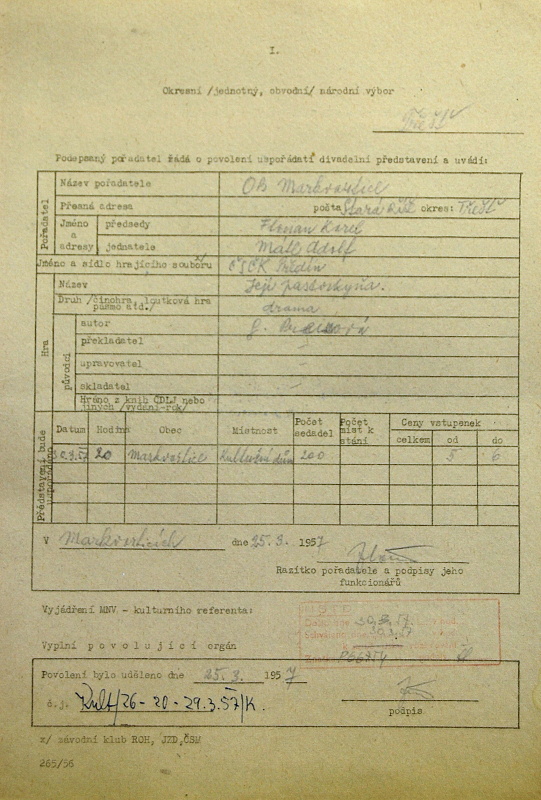 I.
Okresní /jednotný, obvodní/ národní výbor
Třešť
Podepsaný pořadatel žádá o povolení uspořádati divadelní představení a uvádí:
Pořadatel
Název pořadatele OB Markvartice
Přesná adresa pošta Stará Říše okres: Třešť
Jméno a adresy předsedy Florian Karel
jednatele Matl Adolf
Jméno a sídlo hrajícího souboru ČSČK Předín
Hra
Název Její pastorkyňa.
Druh /činohra, loutková hra pásmo atd./ drama
původci
autor G. Preissová
překladatel –
upravovatel –
skladatel –
Hráno z knih ČDLJ nebo jiných /vydání-rok/
Představení bude uspořádáno
Datum Hodina Obec Místnost Počet sedadel Počet míst k stání Ceny vstupenek
celkem od do
30.3.57 20 Markvartice Kulturní dům 200 5 6
V Markvarticích dne 25. 3. 1957
Razítko pořadatele a podpisy jeho
funkcionářů
Vyjádření MNV - kulturního referenta:
30.3. 57.
Vyplní povolující orgán
Povolení bylo uděleno dne 25.3. 1957
č.j. Kult/26-20-29.3.57/K.
podpis
x/ závodní klub ROH, JZD, ČSM
265/56